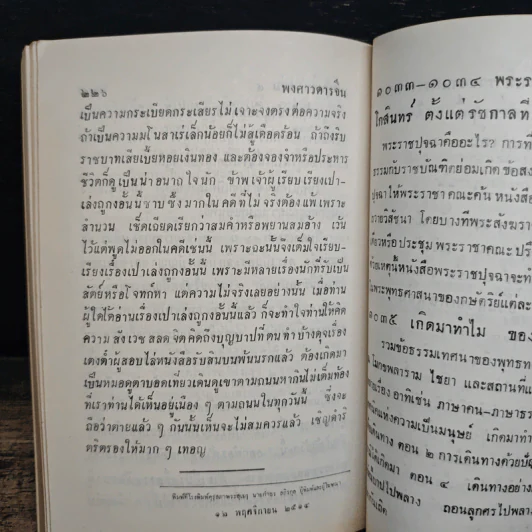 ๒๒๖ พงศาวดารจีน
เป็นความกระเบียดกระเสียรไม่เจาะจงตรงต่อความจริง
ถ้าเป็นความมโนสาเร่เล็กน้อยก็ไม่สู้เดือดร้อน ถ้าถึงริบ
ราชบาทเสียเบี้ยหอยเงินทอง และต้องจองจำหรือประหาร
ชีวิตก็ดูเป็นน่าอนาถใจนัก ข้าพเจ้าผู้เรียบเรียงเปา-
เล่งถูกงอั้นนี้ซาบซึ้งมากในคดีที่ไม่จริงต้องแพ้เพราะ
สำนวน เช็ดเอียดเรียกว่าสมคำหรือพยานสมอ้าง เว้น
ไว้แต่พูดไม่ออกในคดีเช่นนี้ เพราะฉะนั้นจึงเต็มใจเรียบ-
เรียงเรื่องเปาเล่งถูกงอั้นนี้ เพราะมีหลายเรื่องนักที่รับเป็น
สัตย์หรือโจทก์หา แต่ความไม่จริงเลยอย่างนั้น เมื่อท่าน
ผู้ใดได้อ่านเรื่องเปาเล่งถูกงอั้นนี้แล้ว ก็จะทำใจท่านให้คิด
ความสังเวชสลดจิตคิดถึงบุญบาปที่ตนทำบ้างดุจเรื่อง
เตงต้ำผู้สอบไล่หนังสือรับสินบนพ้นนรกแล้ว ต้องเกิดมา
เป็นหมอดูตาบอดเที่ยวเดินดูเขาตามถนนหากินไม่เต็มท้อง
ที่เราท่านได้เห็นอยู่เนือง ๆ ตามถนนในทุกวันนี้ ซึ่งจะ
ถือว่าตายแล้ว ๆ กันนั้นเห็นจะไม่สมควรแล้ว เชิญดำริ
ตริตรองให้มาก ๆ เทอญ
พิมพ์ที่โรงพิมพ์คุรุสภาพระสุเมรุ
๑๒ พฤศจิกายน ๒๕๑๔
๑๐๓๓–๑๐๓๔ พระรา
ไกสินทร์ ตั้งแต่รัชกาลที่
พระราชปุจฉาคืออะไร? การที่
ธรรมกับราชบัณฑิตย่อมเกิดข้อสง
ปุจฉาให้พระราชาคณะค้น หนังสือ
ถวายวิสัชนา โดยบางทีพระสังฆรา
เดียวหรือประชุมพระราชาคณะ ปรึ
ด้วยเหตุนั้นหนังสือพระราชปุจฉาจะทำ
พระพุทธศาสนาของกษัตริย์แต่ละ
๑๐๓๕ เกิดมาทำไม ของ
รวมข้อธรรมเทศนาของพุทธท
โมกขพลาราม ไชยา และสถานที่แ
เรื่อง อาทิเช่น ภาษาคน–ภาษาธร
แห่งความเป็นมนุษย์ เกิดมาทำ
เดินทาง ตอน ๒ การเดินทางด้วยปั
ได้เกิดมา ตอน ๔ เดินทางอย่าง
ไปพลาง ถอนลูกศรไปพลาง